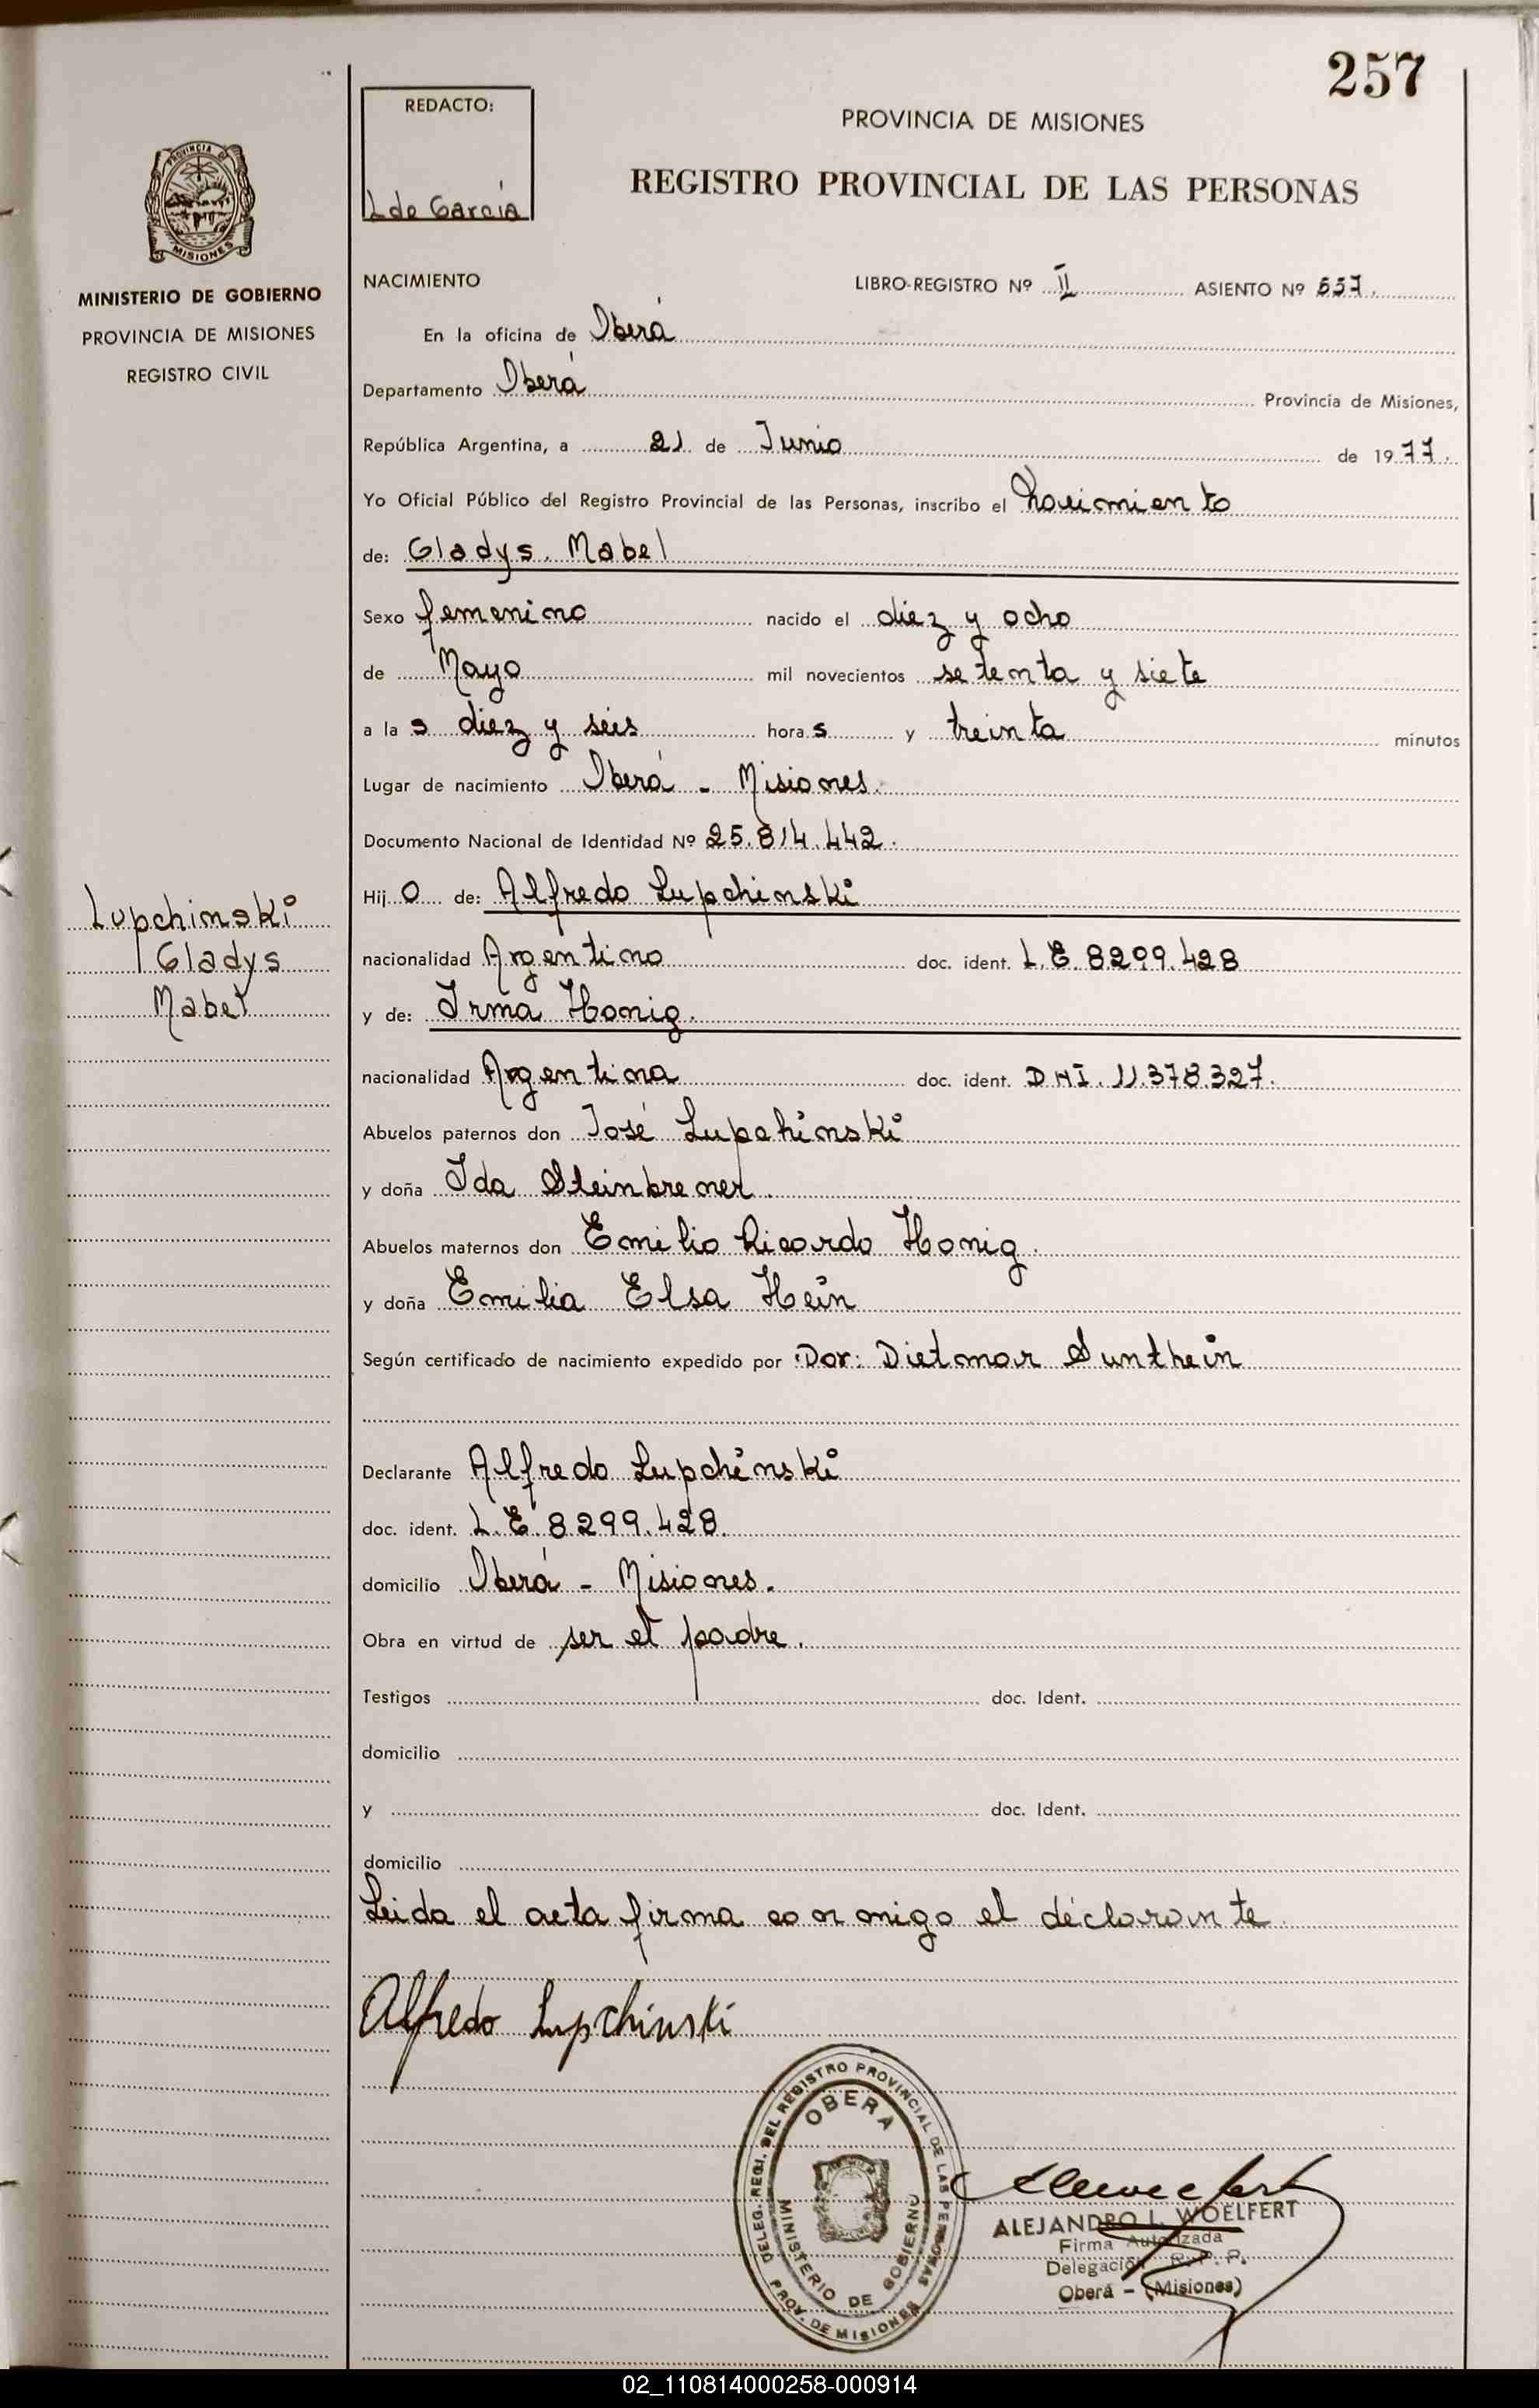 257
REDACTO:
L de García
PROVINCIA DE MISIONES
REGISTRO PROVINCIAL DE LAS PERSONAS
PROVINCIA DE
MISIONES
MINISTERIO DE GOBIERNO
PROVINCIA DE MISIONES
REGISTRO CIVIL
NACIMIENTO LIBRO-REGISTRO Nº II ASIENTO Nº 557.
En la oficina de Oberá
Departamento Oberá Provincia de Misiones,
República Argentina, a 21 de Junio de 1977.
Yo Oficial Público del Registro Provincial de las Personas, inscribo el Nacimiento
de: Gladys Mabel
Sexo femenino nacido el diez y ocho
de Mayo mil novecientos setenta y siete
a las diez y seis horas y treinta minutos
Lugar de nacimiento Oberá - Misiones.
Documento Nacional de Identidad Nº 25.814.442.
Lupchinski
Gladys
Mabel
Hijo de: Alfredo Lupchinski
nacionalidad Argentino doc. ident. L.E. 8299.428
y de: Irma Honig.
nacionalidad Argentina doc. ident. DNI. 11.378.327.
Abuelos paternos don José Lupchinski
y doña Ida Steinbrener.
Abuelos maternos don Emilio Ricardo Honig.
y doña Emilia Elsa Hein
Según certificado de nacimiento expedido por Dor: Dietmar Sunthein
Declarante Alfredo Lupchinski
doc. ident. L.E. 8299.428.
domicilio Oberá - Misiones.
Obra en virtud de ser el padre.
Testigos doc. Ident.
domicilio
y doc. Ident.
domicilio
Leida el acta firma conmigo el declarante
Alfredo Lupchinski
DELEG. REGI. DEL REGISTRO PROVINCIAL DE LAS PERSONAS
OBERA
MINISTERIO DE GOBIERNO
PROV. DE MISIONES
ALEJANDRO L. WOELFERT
Firma Autorizada
Delegación R. P. P.
Oberá - (Misiones)
02_110814000258-000914